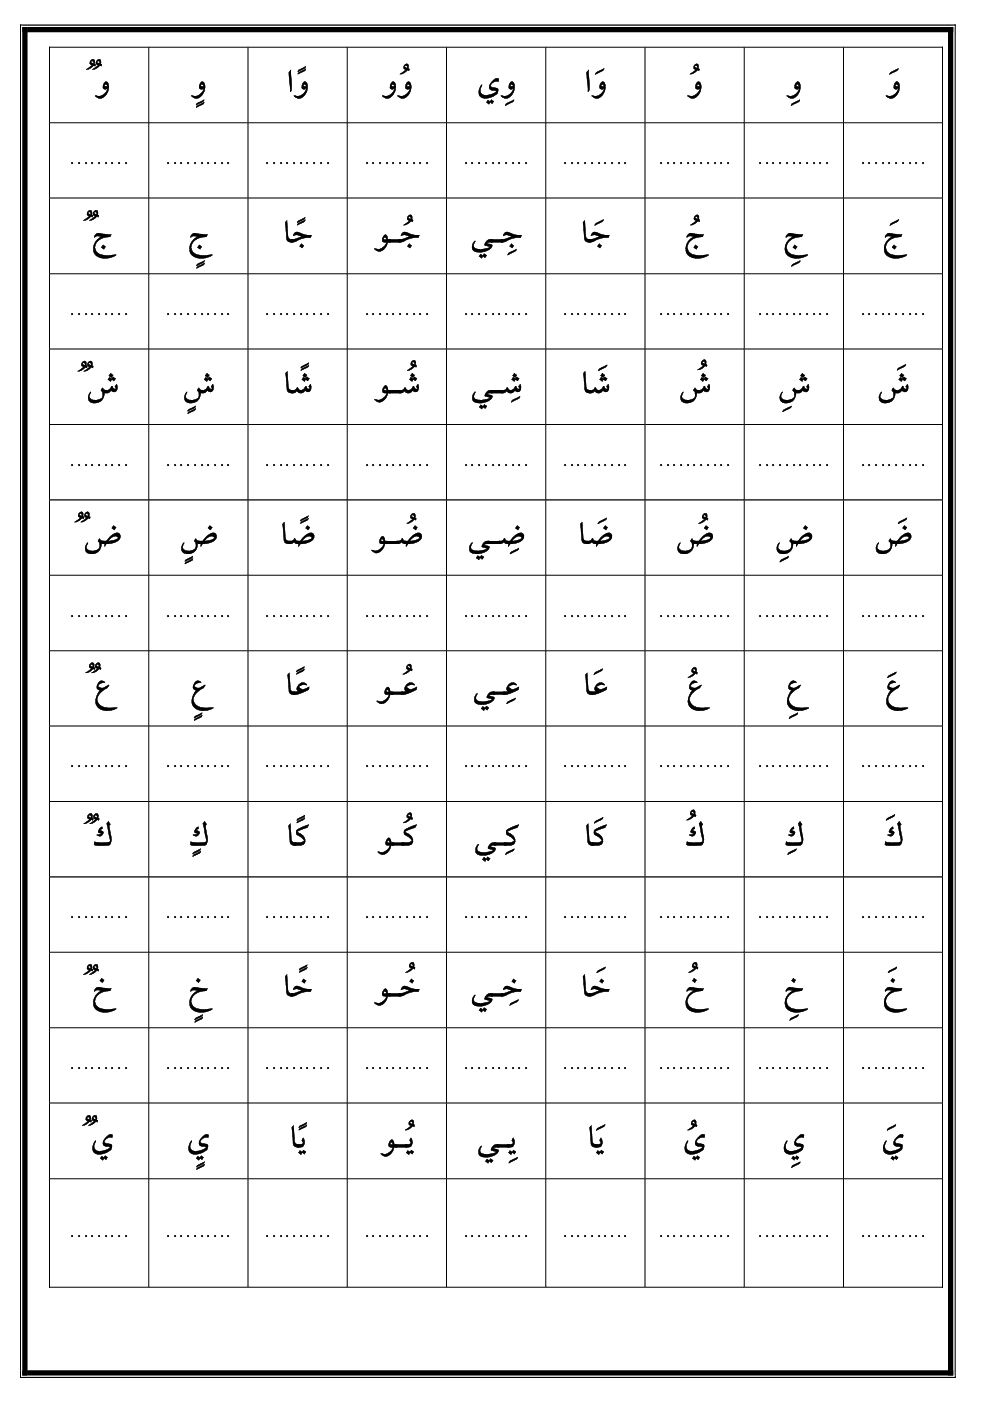 وَ وِ وُ وَا وِي وُو وًا وٍ وٌ
.......... ........... ........... .......... .......... .......... .......... .......... .........
جَ جِ جُ جَا جِـي جُـو جًا جٍ جٌ
.......... ........... ........... .......... .......... .......... .......... .......... .........
شَ شِ شُ شَا شِـي شُـو شًا شٍ شٌ
.......... ........... ........... .......... .......... .......... .......... .......... .........
ضَ ضِ ضُ ضَا ضِـي ضُـو ضًا ضٍ ضٌ
.......... ........... ........... .......... .......... .......... .......... .......... .........
عَ عِ عُ عَا عِـي عُـو عًا عٍ عٌ
.......... ........... ........... .......... .......... .......... .......... .......... .........
كَ كِ كُ كَا كِـي كُـو كًا كٍ كٌ
.......... ........... ........... .......... .......... .......... .......... .......... .........
خَ خِ خُ خَا خِـي خُـو خًا خٍ خٌ
.......... ........... ........... .......... .......... .......... .......... .......... .........
يَ يِ يُ يَا يِـي يُـو يًا يٍ يٌ
.......... ........... ........... .......... .......... .......... .......... .......... .........